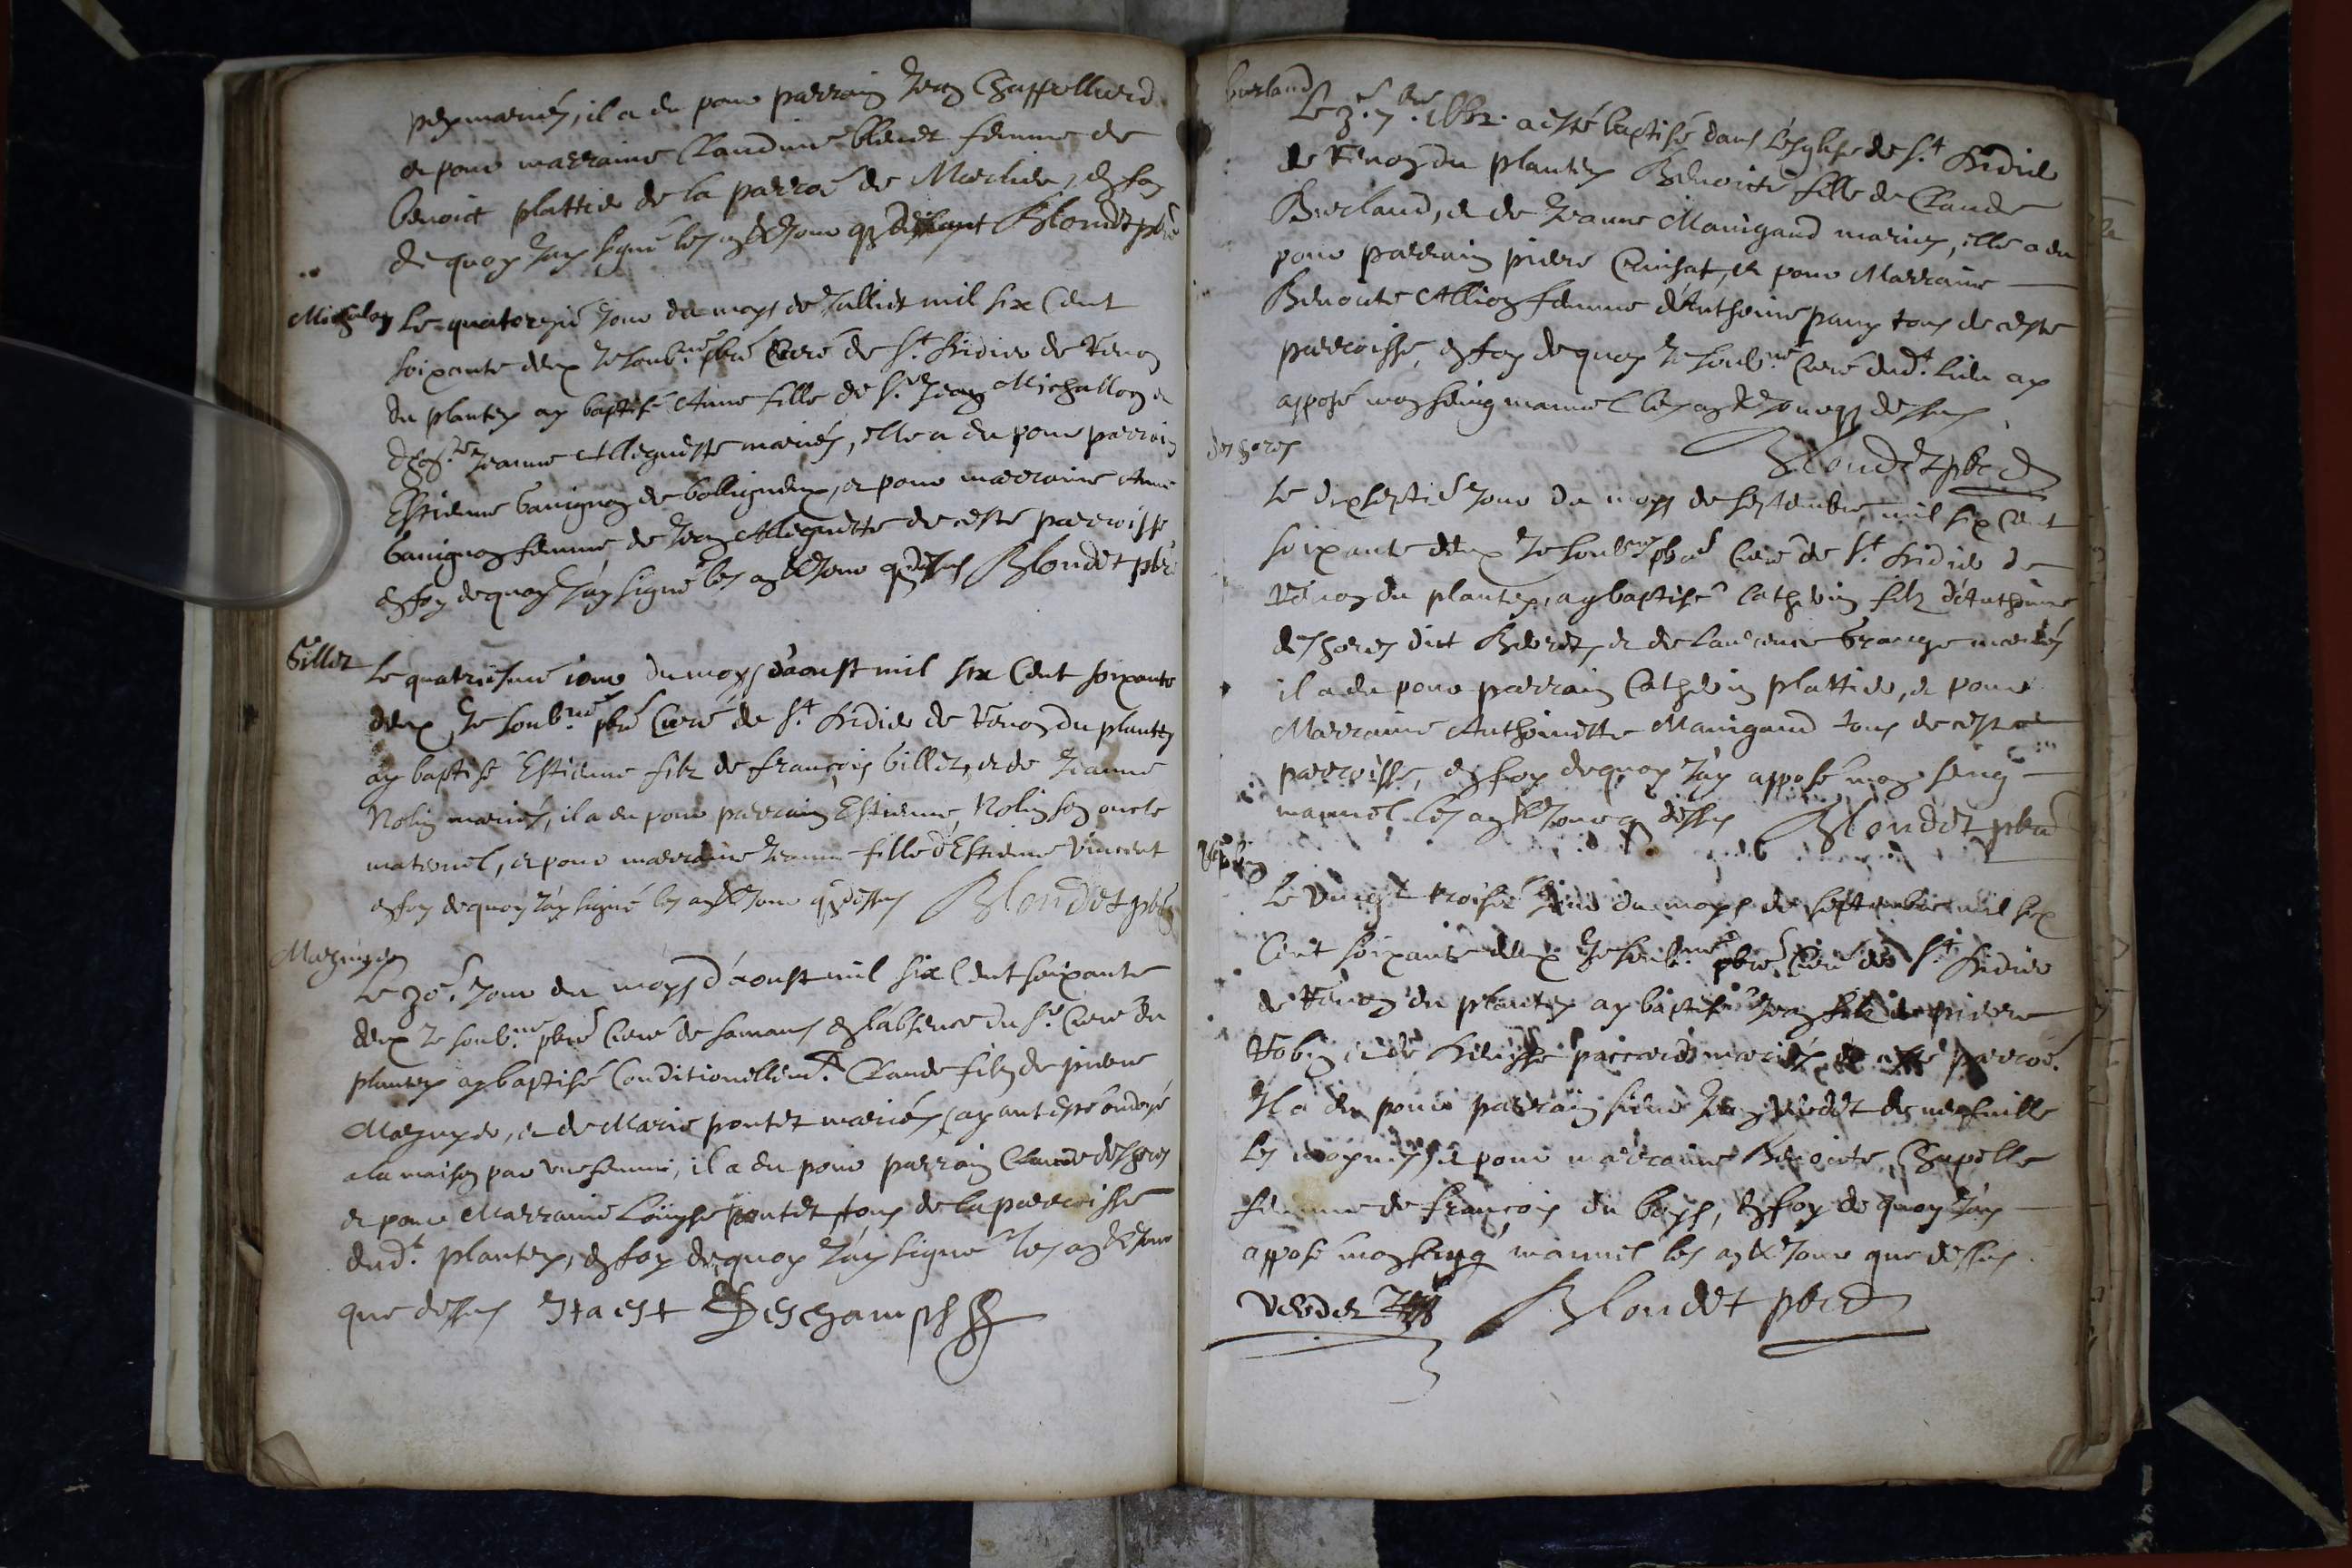 mariés, il a eu pour parrain Jean Chappelland
et pour marraine Claudine femme de
benoict plattier de la parroe de Marlieu, en foy
de quoy Jay signé les an & Jour que dessus Blondet pbre
Michalon
Le quatorzie Jour du moys de Julliet mil six Cent
soixante deux Je soubné pbre Curé de St Didier de Renon
du plantey ay baptisé Anne fille de Sr Jean Michallon et
Jeanne mariés, elle a eu pour parrain
Estienne bauignon de et pour marraine Anne
bauignon femme de Jean de ceste parroisse
en foy de quoy Jay signé les an & Jour que dessus Blondet pbre
Gillet
Le quatriesme iour du moys d'aoust mil six Cent soixante
deux Je soubné pbre Curé de St Didier de Renon du plantey
ay baptisé Estienne filz de françois Gillet, et de Jeanne
Nolin mariés, il a eu pour parrain Estienne Nolin son oncle
maternel, et pour marraine Jeanne fille d'Estienne Vincent
en foy de quoy Jay signé les an & Jour que dessus Blondet pbre
Le 30e Jour du moys d'aoust mil six Cent soixante
deux Je soubné pbre Curé de Samans en l'absence du Sr Curé du
plantey ay baptisé Conditionellemt Claude filz de pierre
et de Marie pontet mariés, ayant esté ondoyé
a la maison par une femme, il a eu pour parrain Claude deshores
et pour Marraine Louyse pontet tous de la parroisse
dudt plantey, en foy de quoy Jay signé les an & Jour
que dessus Ita est Deschamps
burland
Le 3e 7bre 1662 a esté baptisé dans l'esglise de St Didier
de Renon du plantey Benoicte fille de Claude
Burland, et de Jeanne Manigand mariés, elle a eu
pour parrain pierre et pour Marraine
Benoicte Allion femme d'Anthoine tous de ceste
parroisse, en foy de quoy Je soubné Curé dudt lieu ay
apposé mon seing manuel les an & Jour que dessus
Blondet pbre
deshores
Le dixseptie Jour du moys de septembre mil six Cent
soixante deux Je soubné pbre Curé de St Didier de
Renon du plantey, ay baptisé Cathelin filz d'Anthoine
deshores dict et de Laurence Grange mariés
il a eu pour parrain Cathelin plattier, et pour
Marraine Anthoinette Manigand tous de ceste
parroisse, en foy de quoy Jay apposé mon seing
manuel les an & Jour que dessus Blondet pbre
Le vingt troisie Jour du moys de septembre mil six
Cent soixante deux Je soubné pbre Curé de St Didier
de Renon du plantey ay baptisé Jean filz de pierre
Robin et de mariés de ceste parroe
Il a eu pour parrain sieur Jean Verdet de neufuille
les moynes, et pour marraine Benoicte Chapelle
femme de françois du boys, en foy de quoy Jay
apposé mon seing manuel les an & Jour que dessus
Verdet Blondet pbre